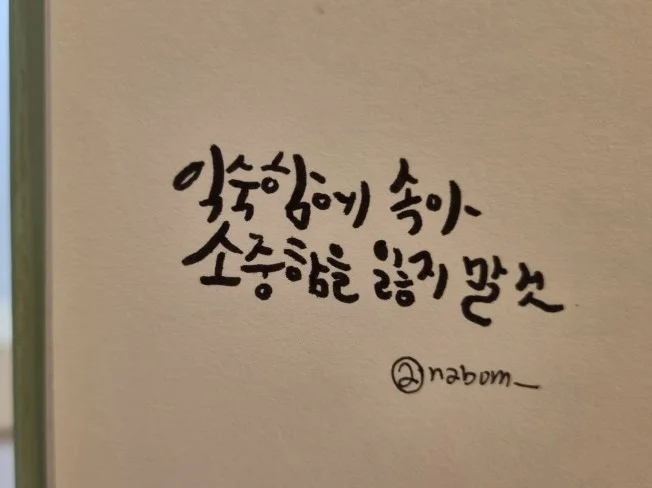 익숙함에 속아
소중함을 잃지 말것
@nabom_